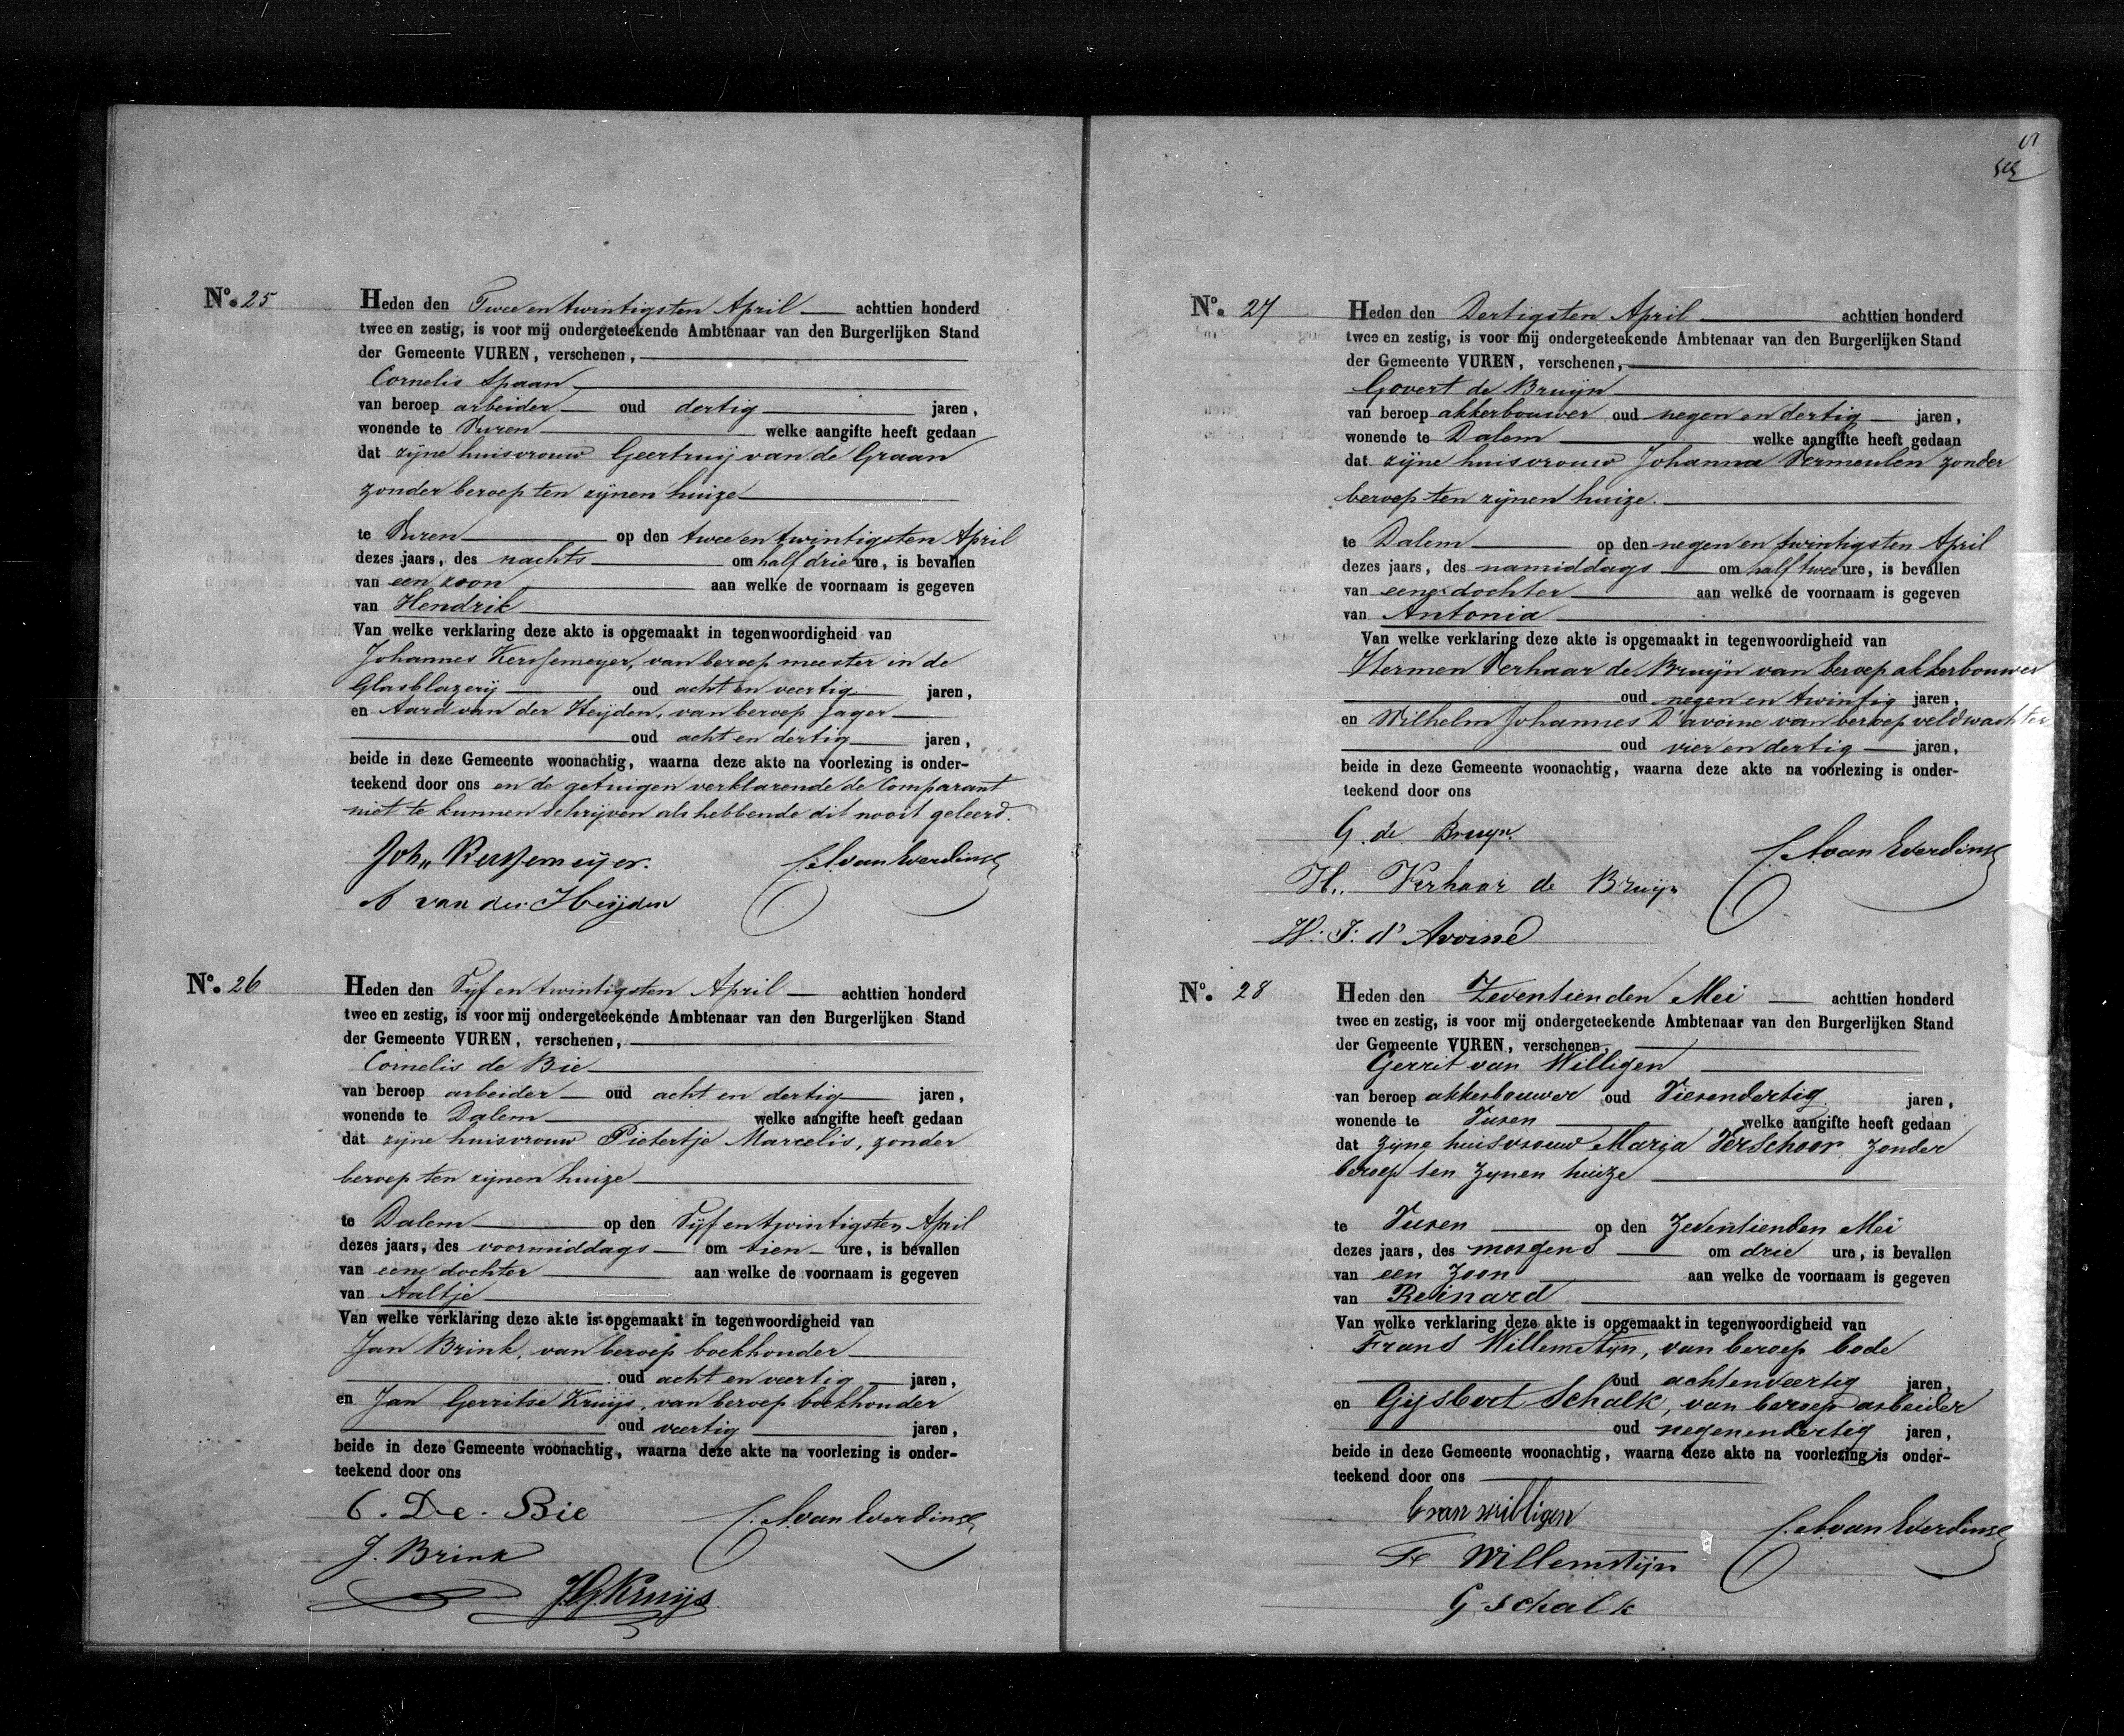 No. 25
Heden den Twee en twintigsten April achttien honderd
twee en zestig, is voor mij ondergeteekende Ambtenaar van den Burgerlijken Stand
der Gemeente VUREN, verschenen,
Cornelis Spaan
van beroep arbeider oud dertig jaren,
wonende te Vuren welke aangifte heeft gedaan
dat zijne huisvrouw Geertruij van de Graan
zonder beroep ten zijnen huize
te Vuren op den twee en twintigsten April
dezes jaars, des nachts om half drie ure, is bevallen
van een zoon aan welke de voornaam is gegeven
van Hendrik
Van welke verklaring deze akte is opgemaakt in tegenwoordigheid van
Johannes Kerssemeijer, van beroep meester in de
Glasblazerij oud acht en veertig jaren,
en Aard van der Heijden, van beroep jager
oud acht en dertig jaren,
beide in deze Gemeente woonachtig, waarna deze akte na voorlezing is onder-
teekend door ons en de getuigen verklarende de Comparant
niet te kunnen schrijven als hebbende dit nooit geleerd.
Joh,, Kerssemeijer. C. A. van Everdinge
A van der Heijden
No. 26
Heden den Vijf en twintigsten April achttien honderd
twee en zestig, is voor mij ondergeteekende Ambtenaar van den Burgerlijken Stand
der Gemeente VUREN, verschenen,
Cornelis de Bie
van beroep arbeider oud acht en dertig jaren,
wonende te Dalem welke aangifte heeft gedaan
dat zijne huisvrouw Pietertje Marcelis, zonder
beroep ten zijnen huize
te Dalem op den Vijf en twintigsten April
dezes jaars, des voormiddags om tien ure, is bevallen
van eene dochter aan welke de voornaam is gegeven
van Aaltje
Van welke verklaring deze akte is opgemaakt in tegenwoordigheid van
Jan Brink, van beroep boekhouder
oud acht en veertig jaren,
en Jan Gerritse Kruijs, van beroep boekhouder
oud veertig jaren,
beide in deze Gemeente woonachtig, waarna deze akte na voorlezing is onder-
teekend door ons
C. De. Bie C. A. van Everdinge
J. Brink
J G Kruijs
No. 27
Heden den Dertigsten April achttien honderd
twee en zestig, is voor mij ondergeteekende Ambtenaar van den Burgerlijken Stand
der Gemeente VUREN, verschenen,
Govert de Bruijn
van beroep akkerbouwer oud negen en dertig jaren,
wonende te Dalem welke aangifte heeft gedaan
dat zijne huisvrouw Johanna Vermeulen zonder
beroep ten zijnen huize.
te Dalem op den negen en twintigsten April
dezes jaars, des namiddags om half twee ure, is bevallen
van eene dochter aan welke de voornaam is gegeven
van Antonia
Van welke verklaring deze akte is opgemaakt in tegenwoordigheid van
Hermen Verhaar de Bruijn van beroep akkerbouwer
oud negen en twintig jaren,
en Wilhelm Johannes D'avoine van beroep veldwachter
oud vier en dertig jaren,
beide in deze Gemeente woonachtig, waarna deze akte na voorlezing is onder-
teekend door ons
G. de Bruyn. C. A. van Everdinge
H. Verhaar de Bruijn
W. J. d'Avoine
No. 28
Heden den Zeventienden Mei achttien honderd
twee en zestig, is voor mij ondergeteekende Ambtenaar van den Burgerlijken Stand
der Gemeente VUREN, verschenen,
Gerrit van Willigen
van beroep akkerbouwer oud Vierendertig jaren,
wonende te Vuren welke aangifte heeft gedaan
dat zijne huisvrouw Marija Verschoor zonder
beroep ten zijnen huize
te Vuren op den Zeventienden Mei
dezes jaars, des morgens om drie ure, is bevallen
van een zoon aan welke de voornaam is gegeven
van Reinard
Van welke verklaring deze akte is opgemaakt in tegenwoordigheid van
Frans Willemstijn, van beroep bode
oud achtenveertig jaren,
en Gijsbert Schalk, van beroep arbeider
oud negenendertig jaren,
beide in deze Gemeente woonachtig, waarna deze akte na voorlezing is onder-
teekend door ons
G van willigen C. A. van Everdinge
F Willemstijn
G schalk